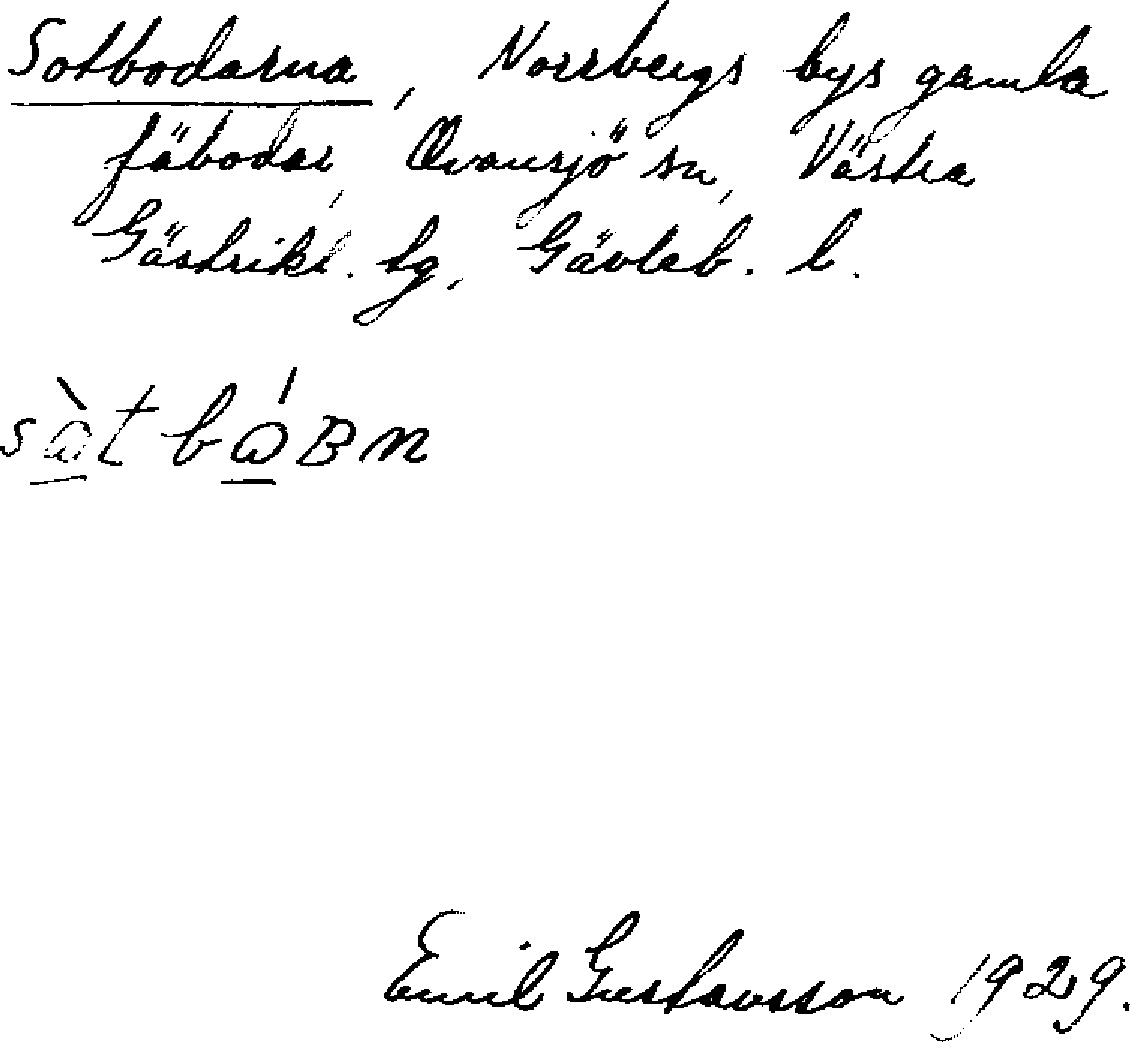 Sotbodarna, Norrbergs bys gamla
fäbodar, Ovansjö sn, Västra
Gästrikl. tg, Gävleb. l.
sὼ̠t bώ̠ʙn
Emil Gustavsson 1929.